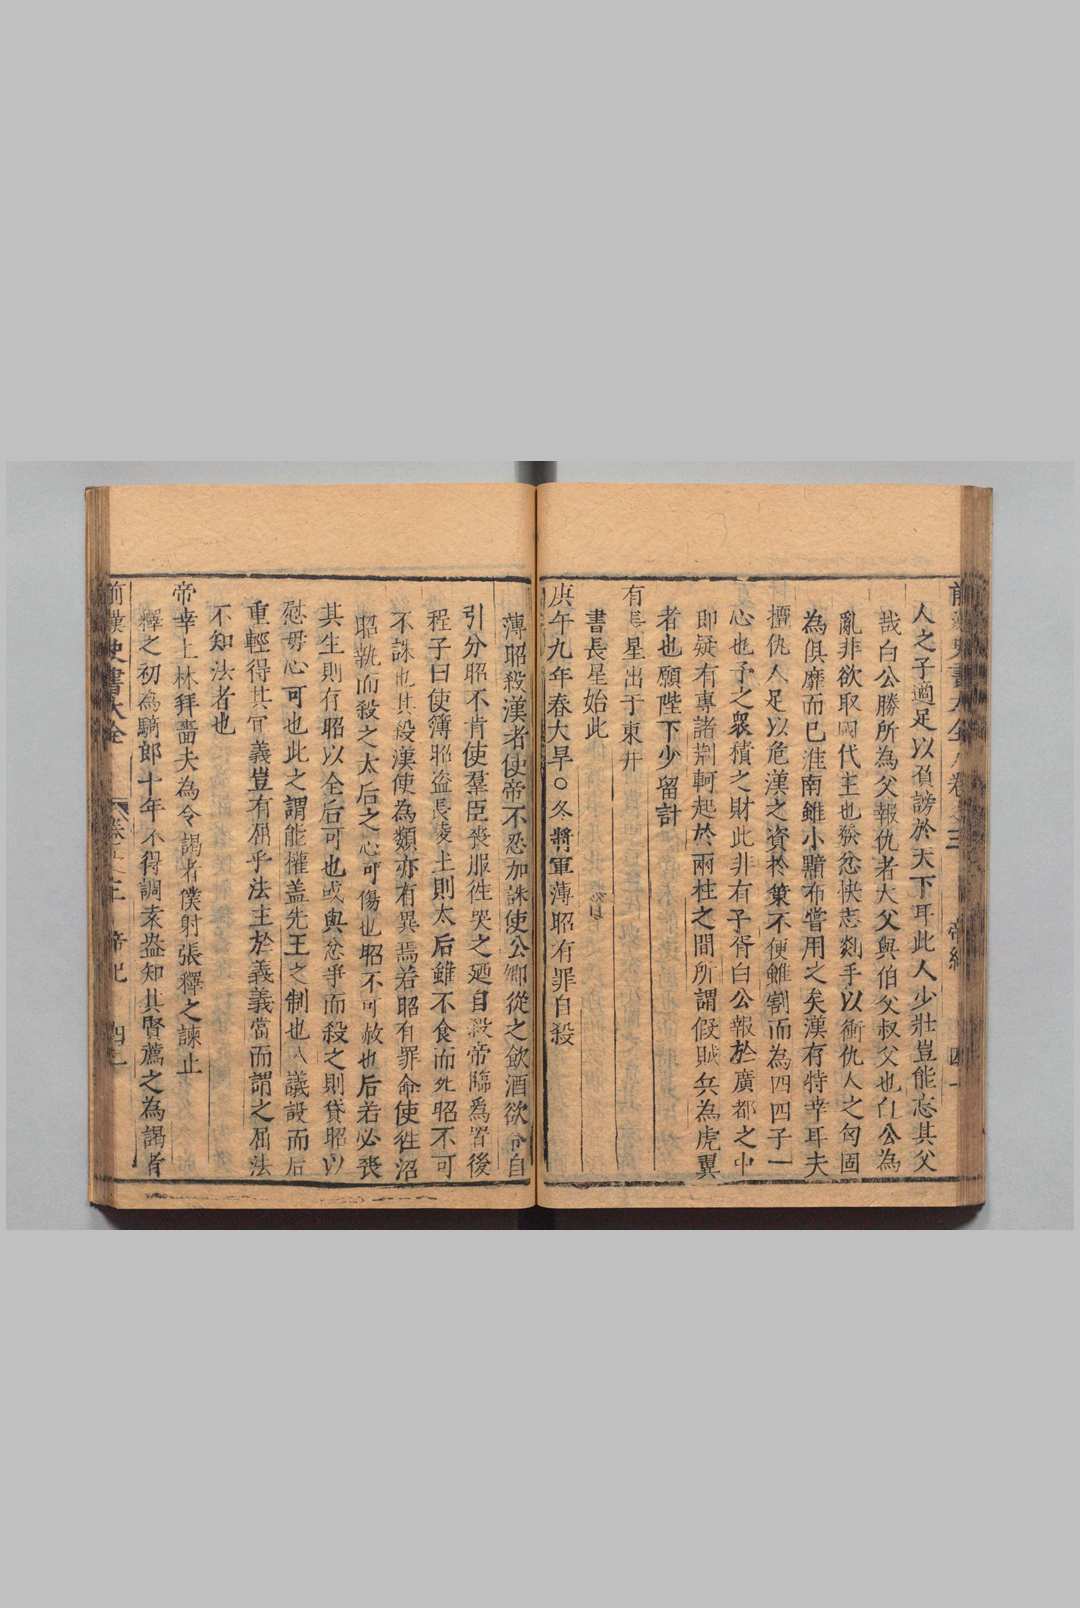 人之子適足以負謗於天下耳此人少壯豈能忘其父
哉白公勝所為父報仇者大父與伯父叔父也白公為
亂非欲取國代主也發忿快志剡手以衝仇人之匈固
為俱靡而已淮南雖小黥布嘗用之矣漢存特幸耳夫
擅仇人足以危漢之資於策不便雖割而為四四子一
心也予之衆積之財此非有子胥白公報於廣都之中
即疑有專諸荆軻起於兩柱之間所謂假賊兵為虎翼
者也願陛下少留計
有長星出于東井
書長星始此
庚午九年春大旱○冬將軍薄昭有罪自殺
薄昭殺漢者使帝不忍加誅使公卿從之飲酒欲令自
引分昭不肯使羣臣喪服徃哭之廼自殺帝臨爲置後
程子曰使薄昭盗長陵土則太后雖不食而死昭不可
不誅也其殺漢使為類亦有異焉若昭有罪命使徃治
昭執而殺之太后之心可傷也昭不可赦也后若必喪
其生則存昭以全后可也或與忿爭而殺之則貸昭以
慰母心可也此之謂能權盖先王之制也八議設而后
重輕得其宜義豈有屈乎法主於義義當而謂之屈法
不知法者也
帝幸上林拜嗇夫為令謁者僕射張釋之諫止
釋之初為騎郎十年不得調袁盎知其賢薦之為謁者
前漢史書大全 卷之三 帝紀 四十